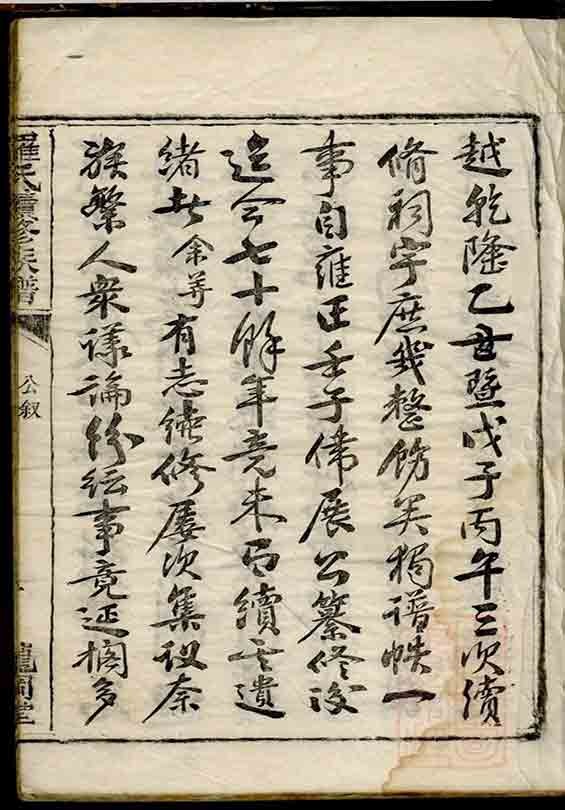 越乾隆乙丑暨戊子丙午三次續
脩祠宇庶幾整飭矣獨譜帙一
事自雍正壬子偉展公纂修後
迄今七十餘年竟未有續其遺
緒者余等有志續修屢次集議奈
族繁人衆議論紛紜事竟延擱多
羅氏續修族譜
公叙